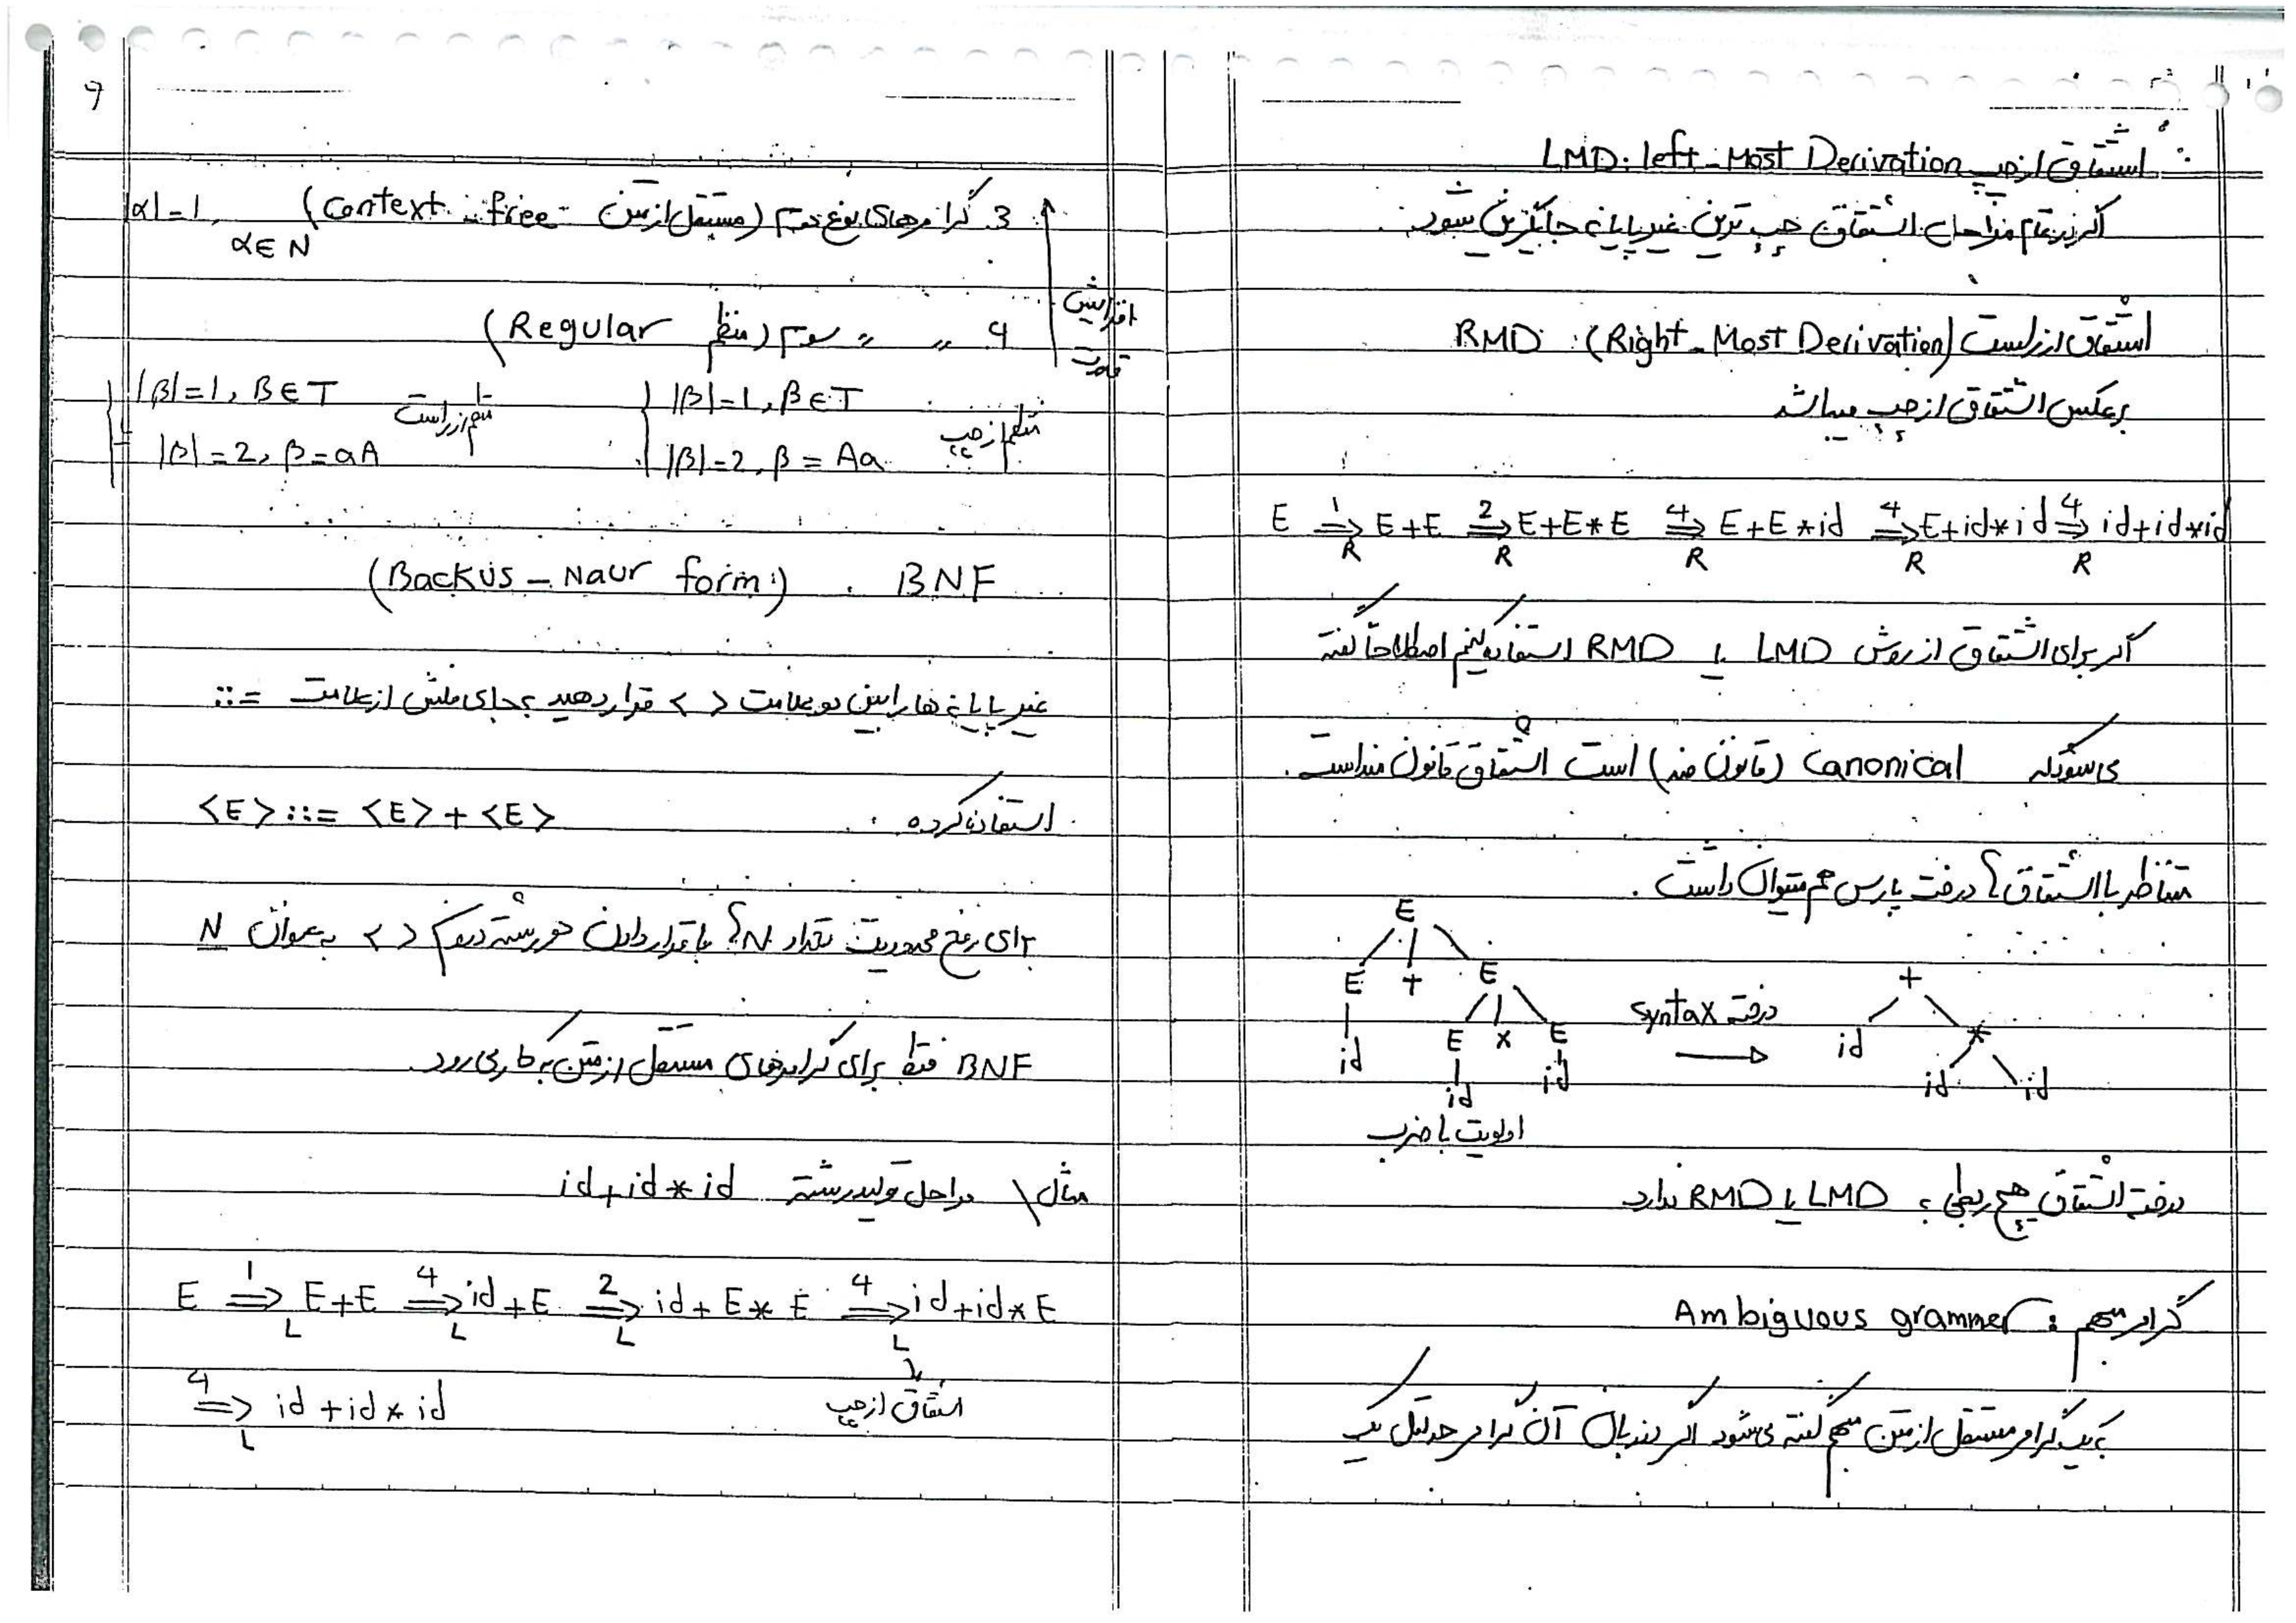 9
3. گرامرهای نوع دوم (مستقل از متن context-free) |α|=1, α∈N
افزایش قدرت
4 〃 〃 سوم (منظم Regular)
منظم از چپ { |β|=1, β∈T
|β|=2, β=Aa
منظم از راست { |β|=1, β∈T
|β|=2, β=aA
BNF . (Backus-Naur form)
غیرپایانه ها را بین دو علامت < > قرار دهید بجای فلش از علامت ::=
استفاده کرده. <E> ::= <E> + <E>
برای رفع محدودیت تعداد N؟ با قرار دادن هر رشته در < > به عنوان N
BNF فقط برای گرامرهای مستقل از متن به کار می رود.
مثال \ مراحل تولید رشته id+id*id
E ⇒ E+E ⇒ id+E ⇒ id+E*E ⇒ id+id*E
1 4 2 4
L L L L
4
⇒ id+id*id
L
اشتقاق از چپ
اشتقاق از چپ LMD: left-Most Derivation
اگر در تمام مراحل اشتقاق چپ ترین غیرپایانه جایگزین شود.
اشتقاق از راست RMD: (Right-Most Derivation)
برعکس اشتقاق از چپ میباشد
1 2 4 4 4
E ⇒ E+E ⇒ E+E*E ⇒ E+E*id ⇒ E+id*id ⇒ id+id*id
R R R R R
اگر برای اشتقاق از روش LMD یا RMD استفاده کنیم اصطلاحاً گفته
می شود که Canonical (قانون مند) است اشتقاق قانون مند است.
متناظر با اشتقاق؟ درخت پارس هم میتوان داشت.
E
E + E
id E x E
id id
اولویت با ضرب
درخت syntax
+
id *
id id
درخت اشتقاق هیچ ربطی به LMD یا RMD ندارد
گرامر مبهم: Ambiguous grammer
به یک گرامر مستقل از متن مبهم گفته می شود اگر در زبان آن گرامر حداقل یک